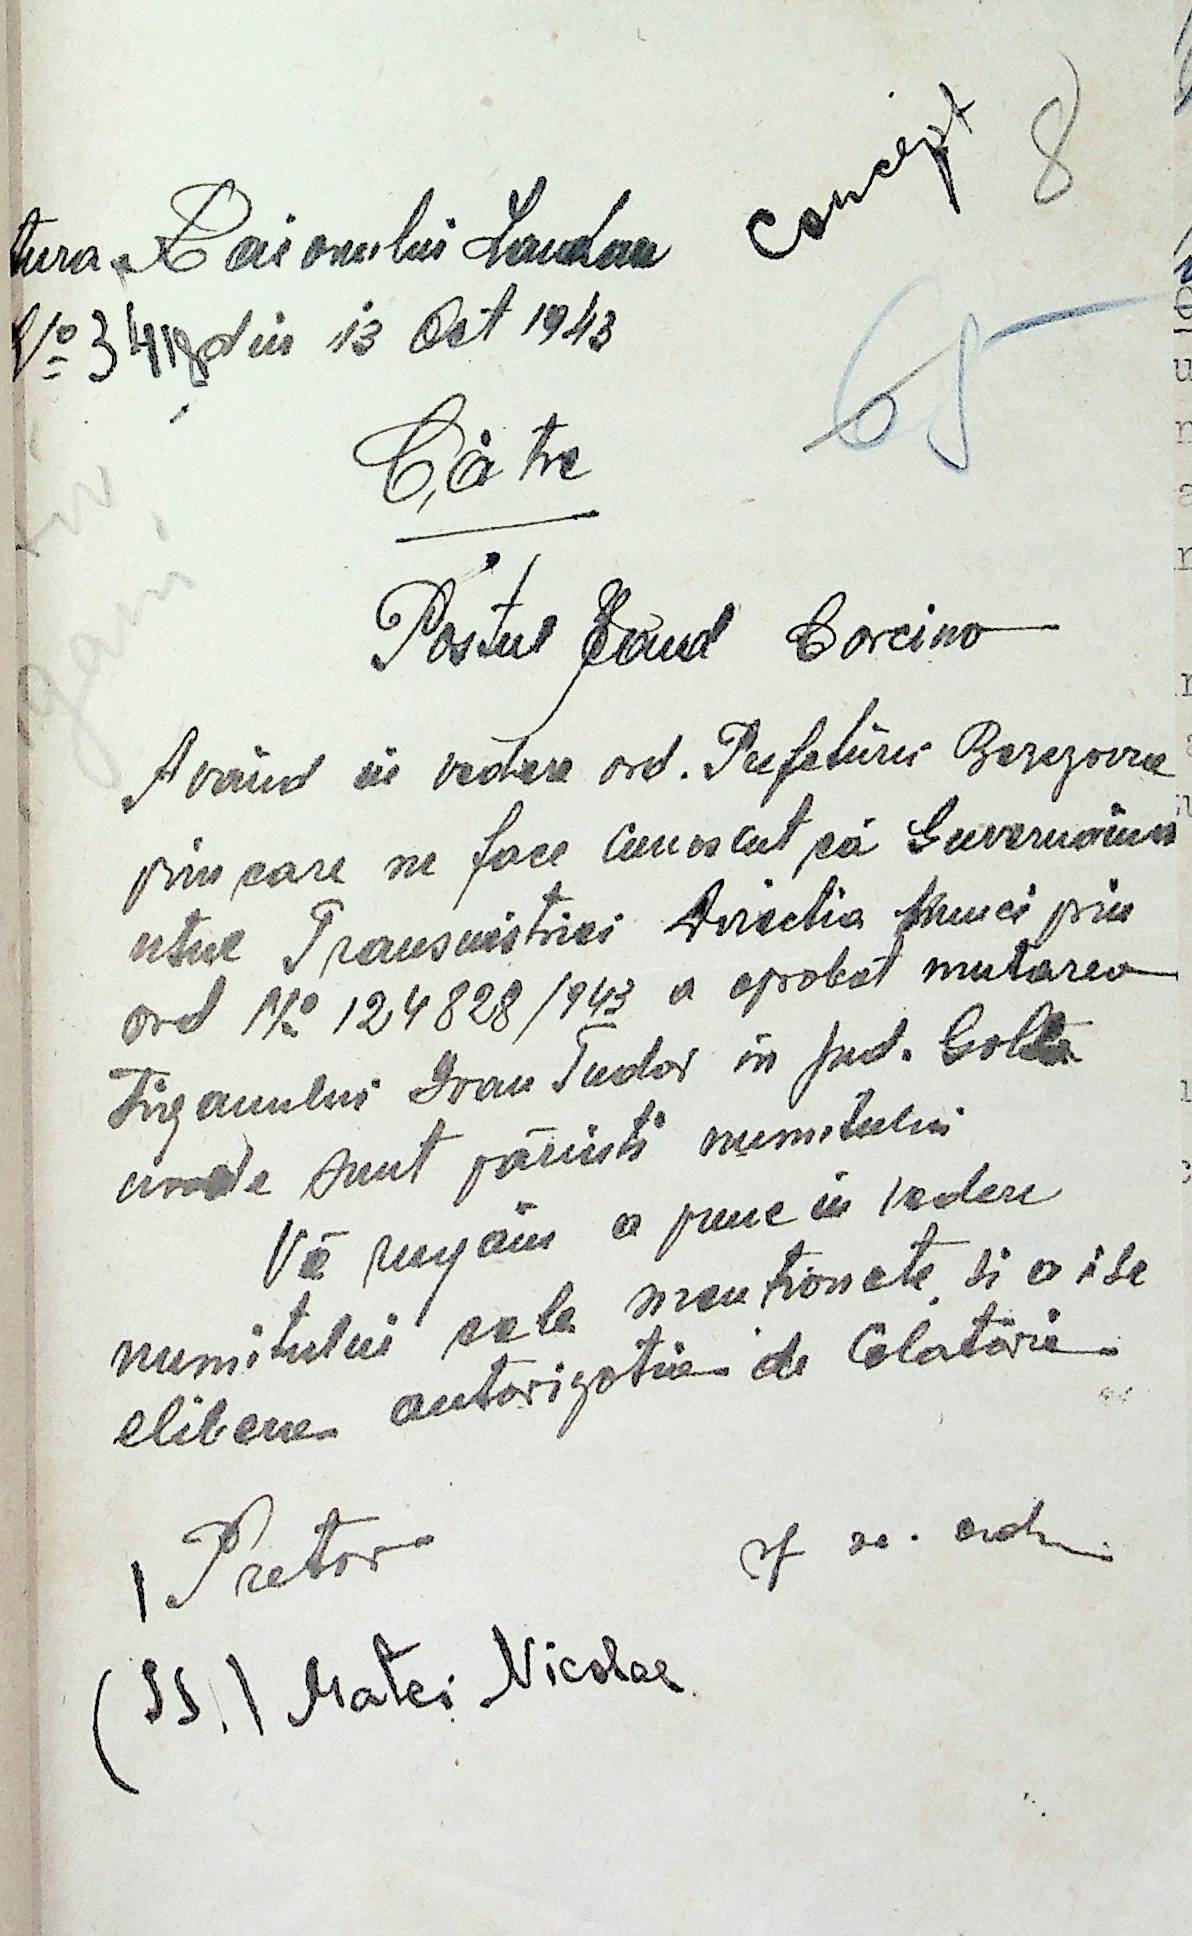 concept 8
tura Raionului Landau
No 3418 din 13 Oct 1943
65
Către
Postul Jand Corcino
Având in vedere ord. Prefeturei Berezovca
prin care ne face cunoscut că Guvernămă
ntul Transnistriei Directia Muncii prin
ord No 124828/943 a aprobat mutarea
Tiganului Ivan Tudor in jud. Golta
unde sunt părinti numitului
Vă rugăm a pune in vedere
numitului cele mentionate si a i se
elibera autorizatie de Calatorie
Pretor
(SS.) Matei Nicolae